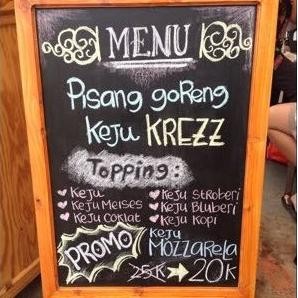 MENU
Pisang goReng
Keju KREZZ
Topping:
Keju
Keju Meises
Keju Coklat
Keju Stroberi
Keju Bluberi
Keju Kopi
PROMO
Keju
Mozzarela
25K → 20K